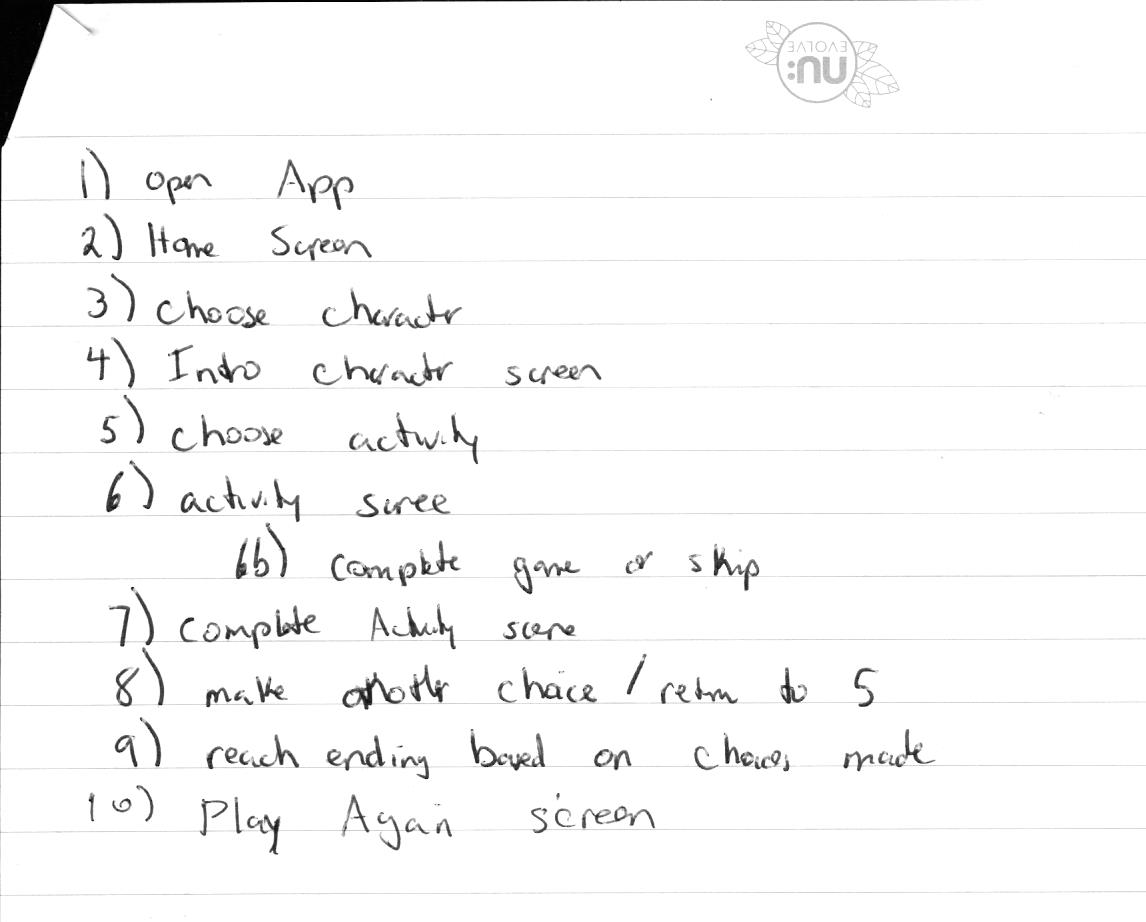 nu:
EVOLVE
1) open App
2) Home Screen
3) choose character
4) Intro character screen
5) choose activity
6) activity scree
6b) complete game or skip
7) complete Activity scene
8) make another choice / return to 5
9) reach ending based on choices made
10) Play Again screen